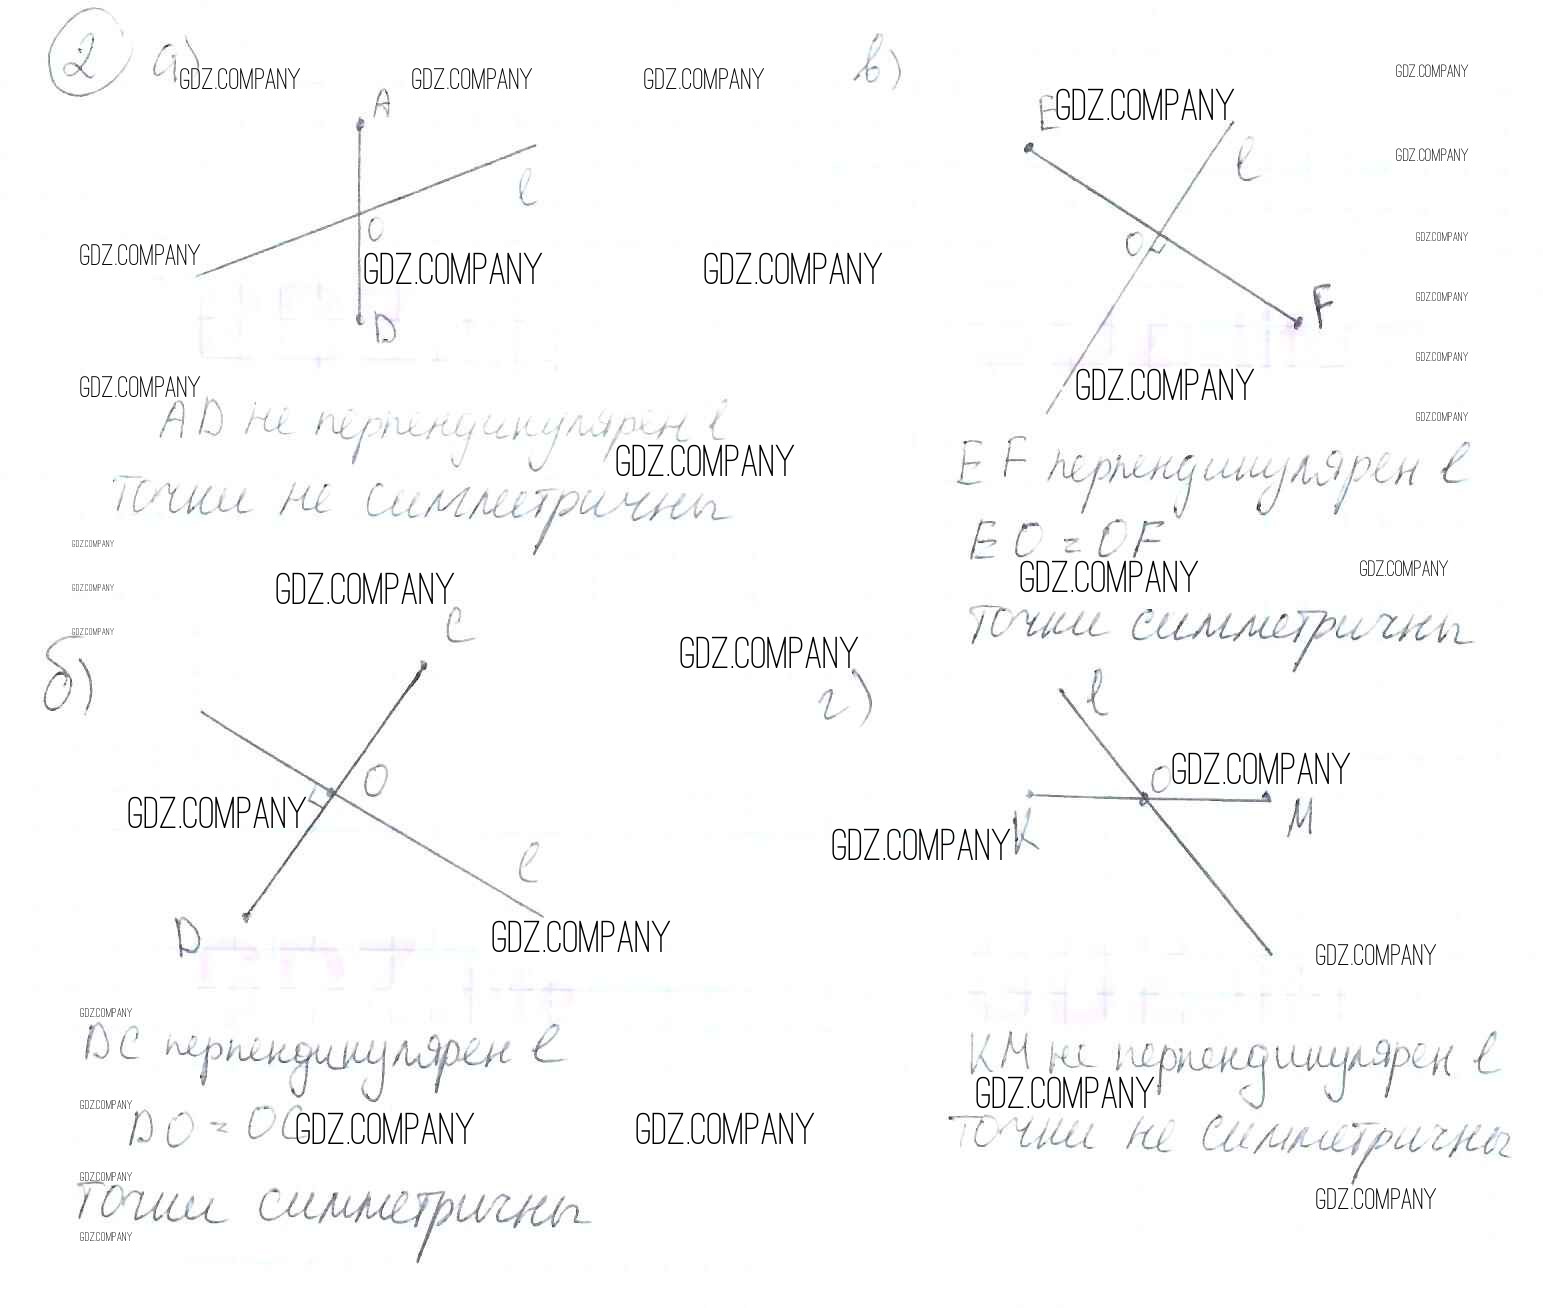 2 а)
GDZ.COMPANY GDZ.COMPANY GDZ.COMPANY
A
l
O
GDZ.COMPANY
GDZ.COMPANY GDZ.COMPANY
D
GDZ.COMPANY
AD не перпендикулярен l
GDZ.COMPANY
Точки не симметричны
в)
GDZ.COMPANY
E GDZ.COMPANY
l
GDZ.COMPANY
O
GDZ.COMPANY
GDZ.COMPANY
F
GDZ.COMPANY
GDZ.COMPANY
GDZ.COMPANY
EF перпендикулярен l
EO = OF
GDZ.COMPANY GDZ.COMPANY
Точки симметричны
GDZ.COMPANY
GDZ.COMPANY
GDZ.COMPANY
GDZ.COMPANY
C
GDZ.COMPANY
б)
O
GDZ.COMPANY
l
D
GDZ.COMPANY
GDZ.COMPANY
DC перпендикулярен l
GDZ.COMPANY
DO = OC GDZ.COMPANY GDZ.COMPANY
GDZ.COMPANY
Точки симметричны
GDZ.COMPANY
г)
l
O GDZ.COMPANY
K
M
GDZ.COMPANY
GDZ.COMPANY
KM не перпендикулярен l
GDZ.COMPANY
Точки не симметричны
GDZ.COMPANY